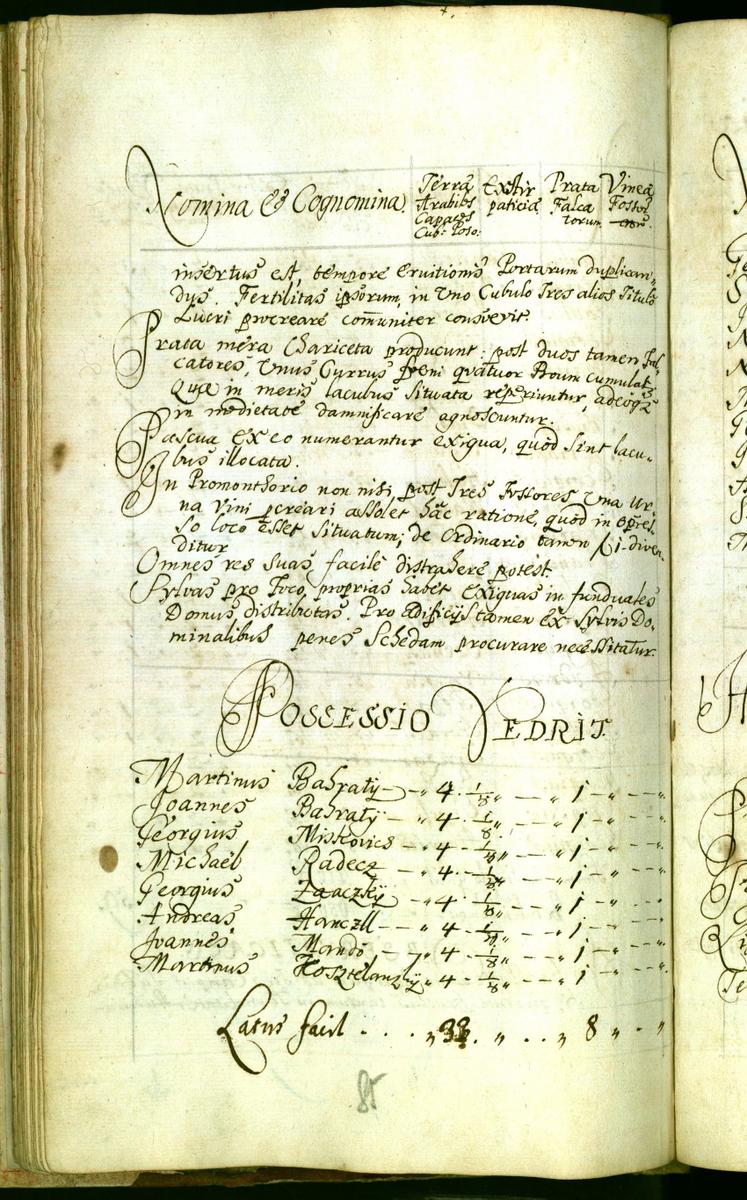 Nomina & Cognomina. Terræ Arabiles Capaces Cub: Poso: Extir paticiæ Prata Falca torum Vineæ Fossor
insertus est, tempore eruitionis Portarum duplican-
dus. Fertilitas ipsorum, in Uno Cubulo Tres alios Titulo
Lucri procreare com̄uniter consvevit.
Prata mera Chariceta producunt: post duos tamen Fal-
catores, Unus Currus foeni quatuor Boum cumulat,
Quæ in meris lacubus situata reperiuntur, adeoq3
in medietate damnificare agnoscuntur.
Pascua ex eo numerantur exigua, quod sint lacu-
bus illocata.
In Promonthorio non nisi post Tres Fossores Una Ur-
na Vini pcreari assolet hac ratione, quod in
so loco esset situatum; de Ordinario tamen f 1 diven-
ditur
Omnes res suas facile distrahere potest.
Sylvas pro Foco, proprias habet exiguas in funduales
Domus distributas. Pro ædificijs tamen ex Sylvis Do-
minalibus penes Schedam procurare necessitatur.
POSSESSIO VEDRIT
Martinus Bahraty — „ 4 1/8 „ — „ 1 — „ — „
Joannes Bahraty — „ 4 1/8 „ — „ 1 — „ — „
Georgius Miskovics — 4 1/8 „ — „ 1 — „ — „
Michaël Radecz — 4 1/8 „ — „ 1 — „ — „
Georgius Zaaczky — 4 1/8 „ — „ 1 — „ — „
Andreas Hanczll — „ 4 1/8 „ — „ 1 — „ — „
Joannes Mando — „ 4 1/8 „ — „ 1 — „ — „
Martinus Kosztelanzÿ „ 4 1/8 „ — „ 1 — „ — „
Latus facit . . . „ 33 . „ . . „ 8 „ . „
85